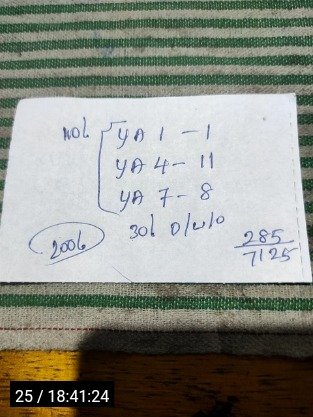 YA 1 - 1
YA 4 - 11
YA 7 - 8
306 0/w/0
2006
285
7125
25 / 18:41:24